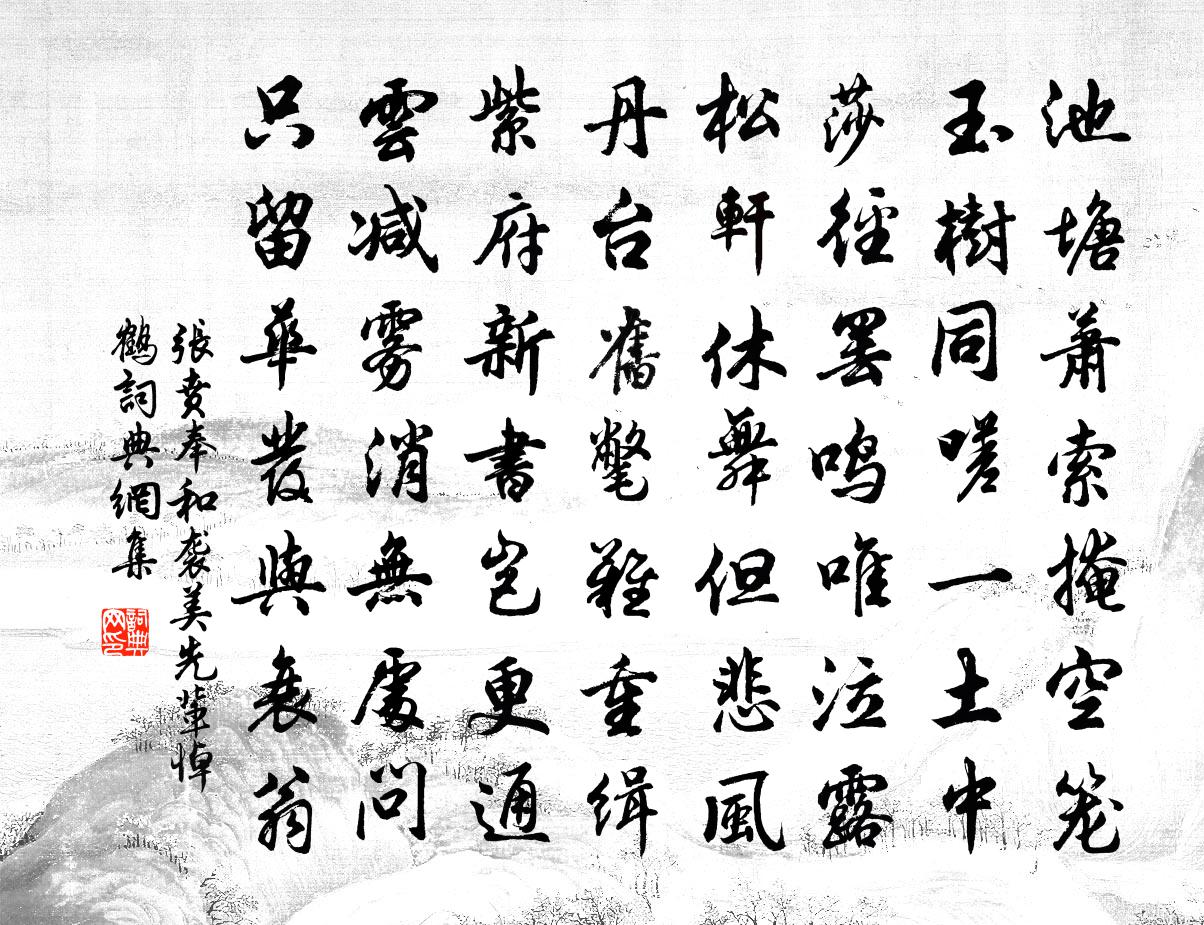 池塘萧索掩空笼
玉樹同嗟一土中
莎徑罢鳴唯泣露
松軒休舞但悲風
丹台舊氅難重缉
紫府新書岂更通
雲减雾消無處問
只留華發與衰翁
張賁奉和袭美先輩悼
鶴詞典網集
詞典网印